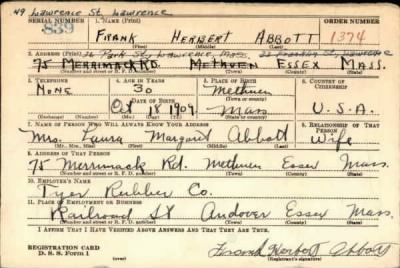 49 Lawrence St. Lawrence
SERIAL NUMBER 1. NAME (Print) ORDER NUMBER
839 FRANK HERBERT ABBOTT 1374
(First) (Middle) (Last)
2. ADDRESS (Print) 26 Park St., Lawrence, Mass. 22 Franklin St. Lawrence
75 MERRIMACK RD. METHUEN ESSEX MASS.
(Number and street or R. F. D. number) (Town) (County) (State)
3. TELEPHONE 4. AGE IN YEARS 5. PLACE OF BIRTH 6. COUNTRY OF CITIZENSHIP
NONE 30 Methuen
DATE OF BIRTH (Town or county)
Oct 18 1909 Mass. U.S.A.
(Mo.) (Day) (Yr.) (State or country)
7. NAME OF PERSON WHO WILL ALWAYS KNOW YOUR ADDRESS 8. RELATIONSHIP OF THAT PERSON
Mrs. Laura Margaret Abbott Wife
(Mr., Mrs., Miss) (First) (Middle) (Last)
9. ADDRESS OF THAT PERSON
75 Merrimack Rd. Methuen Essex Mass.
(Number and street or R. F. D. number) (Town) (County) (State)
10. EMPLOYER'S NAME
Tyer Rubber Co.
11. PLACE OF EMPLOYMENT OR BUSINESS
Railroad St Andover Essex Mass.
(Number and street or R. F. D. number) (Town) (County) (State)
I AFFIRM THAT I HAVE VERIFIED ABOVE ANSWERS AND THAT THEY ARE TRUE.
REGISTRATION CARD
D. S. S. Form 1 (over) Frank Herbert Abbott
(Registrant's signature)